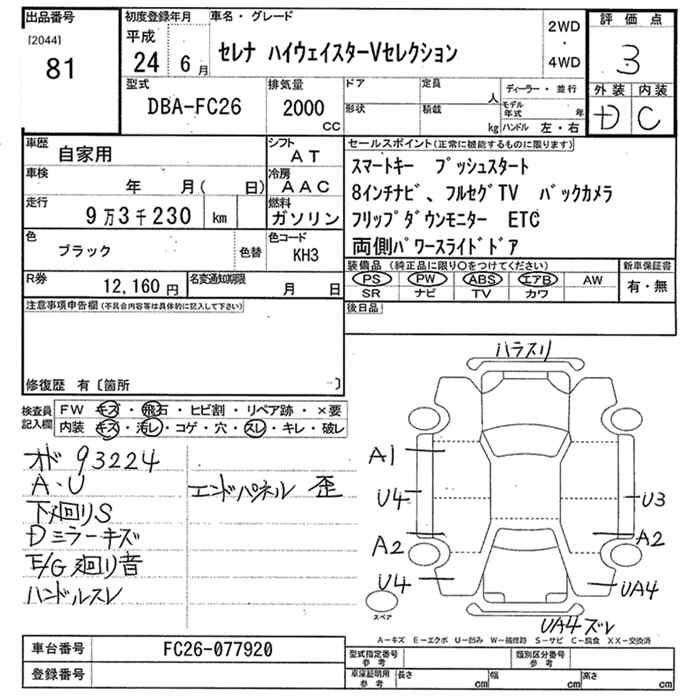 出品番号 初度登録年月 車名・グレード 評価点
[2044] 81
平成 24 6月 セレナ ハイウェイスターVセレクション 2WD ・ 4WD 3
型式 排気量 ドア 定員 人 ディーラー・並行 外装 内装
DBA-FC26 2000 CC 形状 積載 kg モデル年式 年 ハンドル 左・右 D C
車歴 自家用 シフト AT セールスポイント(正常に機能するものに限ります)
車検 年 月( 日) 冷房 AAC スマートキー プッシュスタート
走行 9万3千230 km 燃料 ガソリン 8インチナビ、フルセグTV バックカメラ
フリップダウンモニター ETC
色 ブラック 色替 色コード KH3 両側パワースライドドア
R券 12,160円 名変通知期限 月 日 装備品(純正品に限り○をつけてください) 新車保証書
PS PW ABS エアB AW 有・無
SR ナビ TV カワ
注意事項申告欄(不具合内容等は具体的に記入して下さい) 後日品
修復歴 有〔箇所 〕
検査員記入欄 FW キズ・飛石・ヒビ割・リペア跡・×要
内装 キズ・汚レ・コゲ・穴・スレ・キレ・破レ
オド 93224
A・U エンドパネル 歪
下廻りS
Dミラーキズ
E/G廻り音
ハンドルスレ
ハラスリ
A1
U4 U3
A2 A2
U4 UA4
スペア UA4 ズレ
A-キズ E-エクボ U-凹み W-補修跡 S-サビ C-腐食 XX-交換済
車台番号 FC26-077920 型式指定番号 参考 類別区分番号 参考
登録番号 車庫証明用 参考 長さ cm 幅 cm 高さ cm